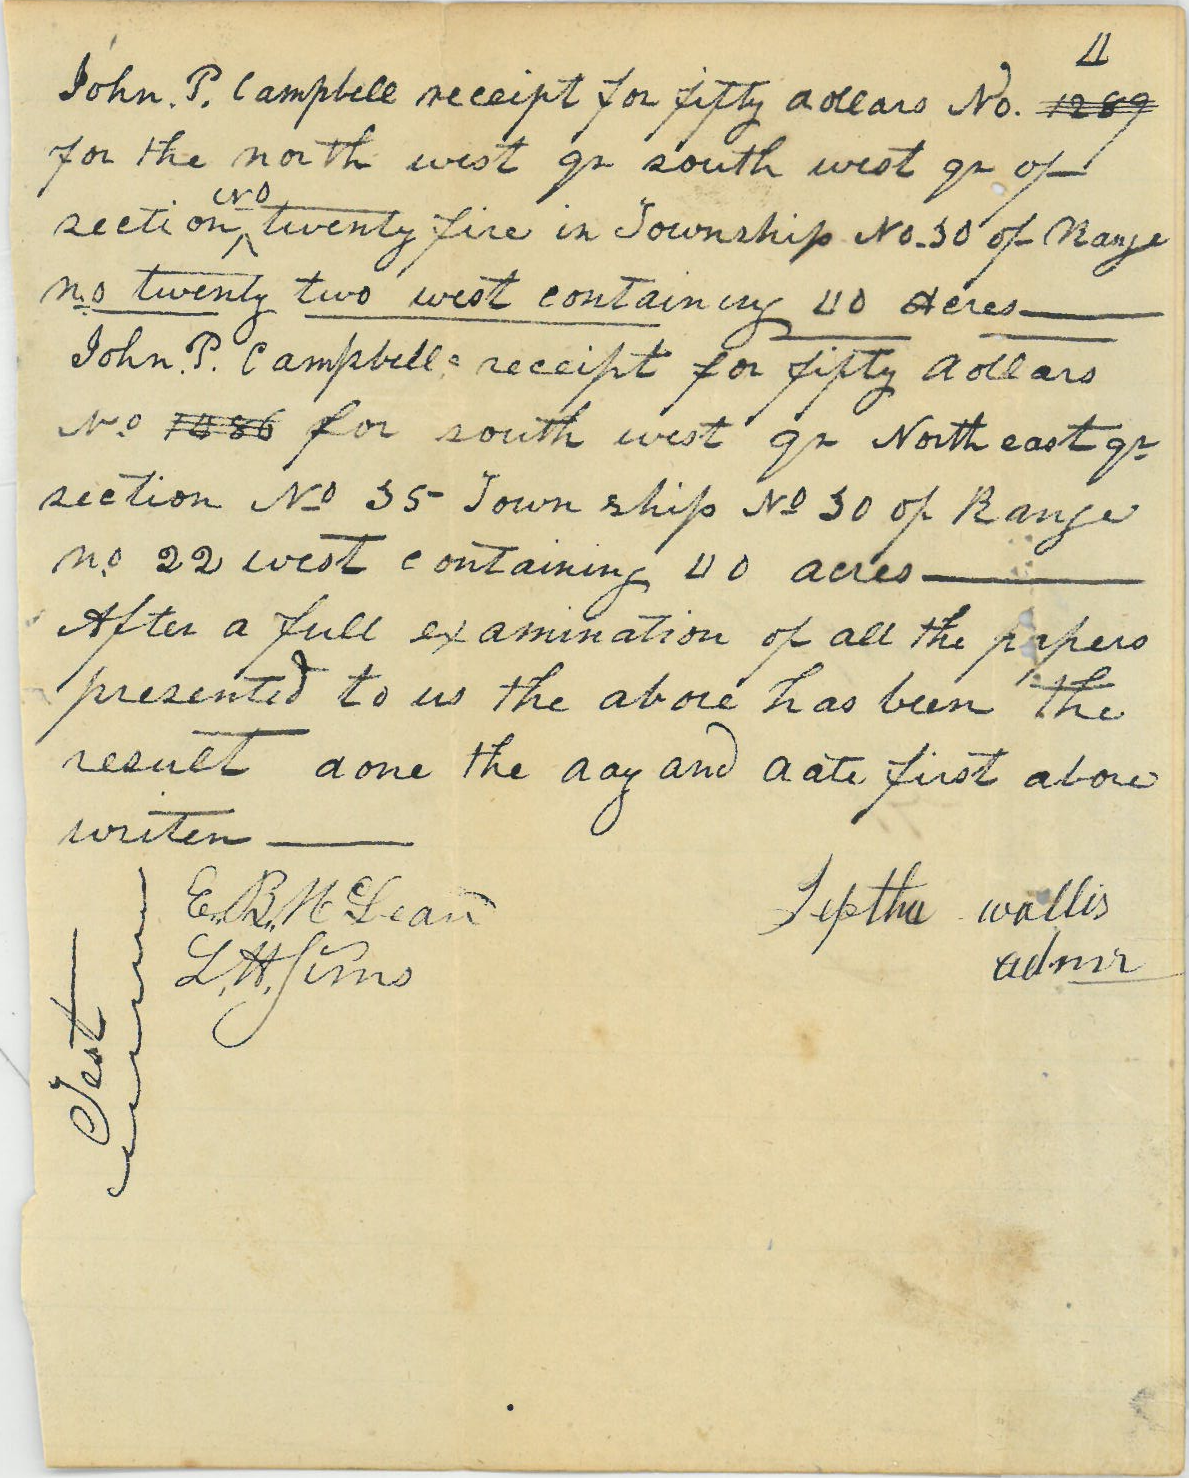 4
John. P. Campbell receipt for fifty dollars No. 1289
for the north west qr south west qr of
section No twenty five in Township No. 30 of Range
no twenty two west containing 40 Acres
John. P. Campbells receipt for fifty dollars
No 1486 for south west qr North east qr
section No 35 Town ship No 30 of Range
no 22 west containing 40 acres
After a full examination of all the papers
presented to us the above has been the
result done the day and date first above
writen
Test
E. B. McLean
L. H. Sims
Jeptha wallis
admr